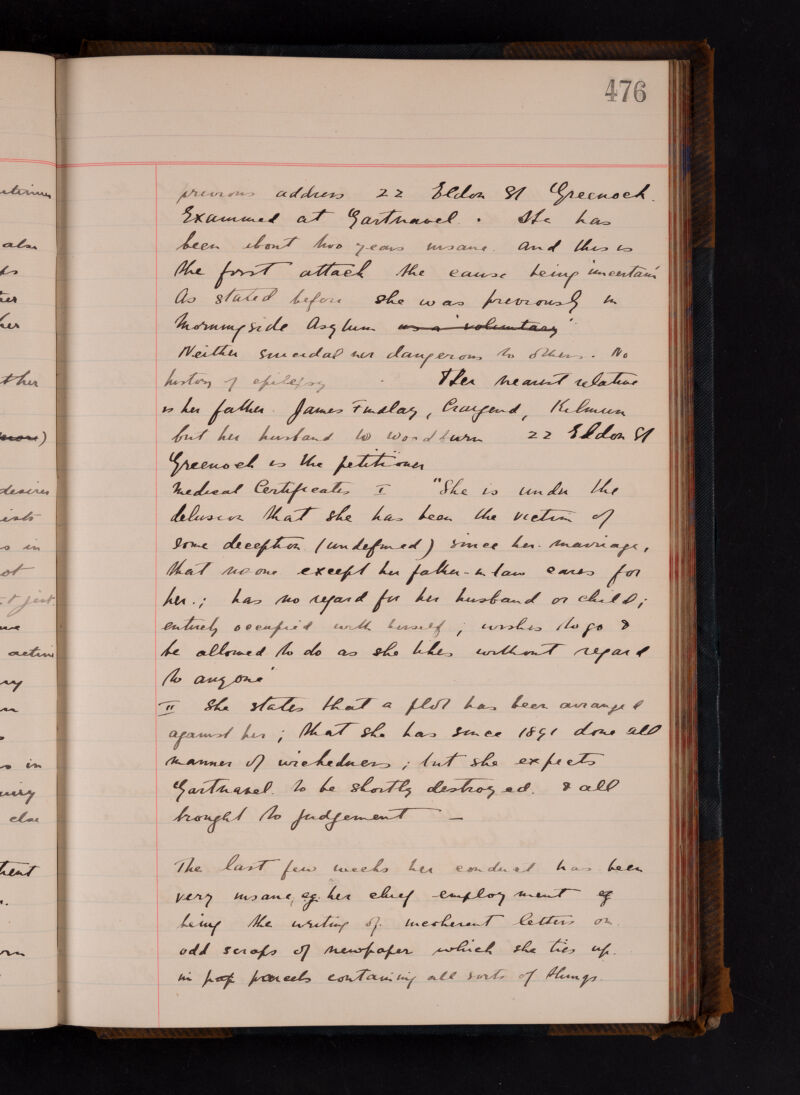 476
previous address 22 Eldon St Greenock.
Examined at Gartnavel. She has
been about two years insane. and this is
the first attack the cause being "uncertain"
As stated before she was previously in
Morningside Asylum as a "voluntary".
Neither suicidal nor dangerous to others. No
history of epilepsy. Her nearest relative
is her father. James Findlay, Craigend, Kilmun
but her husband W Woodburn 22 Eldon St
Greenock is the petitioner
Medical Certificates I "She is under the
delusion that she has been the victim of
some deception (undefined) since her marriage,
that no one except her father-in-law cares for
her.; has no regard for her husband or child;
entirely occupied with herself; wishes to go &
be allowed to do as she likes without regard
to anyone"
II She states that a plot has been arranged
against her; that she has since 1891 done all
manner of wickedness; but she expects
Gartnavel. to be shortly destroyed. & all
brought to judgement —
The last few weeks her conduct has been
very insane, eg. her chief employment eg
being the writing of incoherent letters on
odd scraps of newspaper which she ties up.
in pap parcels containing all sorts of things
also
her
ther
desires
in
active
in
else